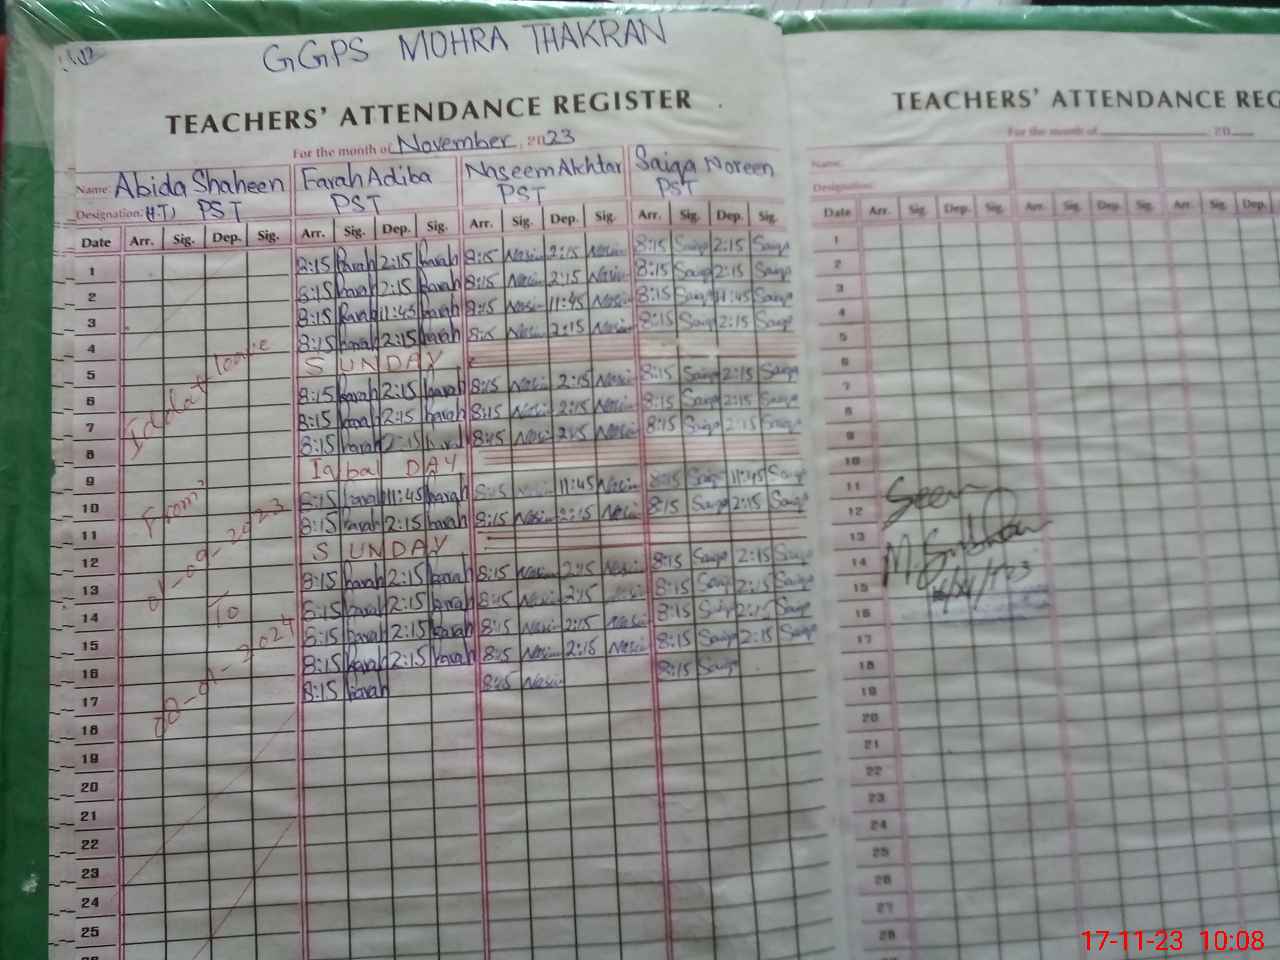 GGPS MOHRA THAKRAN
TEACHERS' ATTENDANCE REGISTER
For the month of November 2023
Name: Abida Shaheen Farah Adiba Naseem Akhtar Saiqa Noreen
Designation: (H.T) PST PST PST PST
Date Arr. Sig. Dep. Sig. Arr. Sig. Dep. Sig. Arr. Sig. Dep. Sig. Arr. Sig. Dep. Sig.
1 8:15 Farah 2:15 Farah 8:15 Nasim 2:15 Nasim 8:15 Saiqa 2:15 Saiqa
2 8:15 Farah 2:15 Farah 8:15 Nasim 2:15 Nasim 8:15 Saiqa 2:15 Saiqa
3 8:15 Farah 11:45 Farah 8:15 Nasim 11:45 Nasim 8:15 Saiqa 11:45 Saiqa
4 8:15 Farah 2:15 Farah 8:15 Nasim 2:15 Nasim 8:15 Saiqa 2:15 Saiqa
5 SUNDAY
6 8:15 Farah 2:15 Farah 8:15 Nasim 2:15 Nasim 8:15 Saiqa 2:15 Saiqa
7 8:15 Farah 2:15 Farah 8:15 Nasim 2:15 Nasim 8:15 Saiqa 2:15 Saiqa
8 8:15 Farah 2:15 Farah 8:15 Nasim 2:15 Nasim 8:15 Saiqa 2:15 Saiqa
9 Iqbal DAY
10 8:15 Farah 11:45 Farah 8:15 Nasim 11:45 Nasim 8:15 Saiqa 11:45 Saiqa
11 8:15 Farah 2:15 Farah 8:15 Nasim 2:15 Nasim 8:15 Saiqa 2:15 Saiqa
12 SUNDAY
13 8:15 Farah 2:15 Farah 8:15 Nasim 2:15 Nasim 8:15 Saiqa 2:15 Saiqa
14 8:15 Farah 2:15 Farah 8:15 Nasim 2:15 Nasim 8:15 Saiqa 2:15 Saiqa
15 8:15 Farah 2:15 Farah 8:15 Nasim 2:15 Nasim 8:15 Saiqa 2:15 Saiqa
16 8:15 Farah 2:15 Farah 8:15 Nasim 2:15 Nasim 8:15 Saiqa 2:15 Saiqa
17 8:15 Farah 8:15 Nasim 8:15 Saiqa
18
19
20
21
22
23
24
25
Iddat leave
From
01-09-2023
To
08-01-2024
TEACHERS' ATTENDANCE REG
For the month of 20
Name:
Designation:
Date Arr. Sig. Dep. Sig. Arr. Sig. Dep. Sig. Arr. Sig. Dep.
1
2
3
4
5
6
7
8
9
10
11
12
13
14
15
16
17
18
19
20
21
22
23
24
25
26
27
28
Seen
17-11-23 10:08